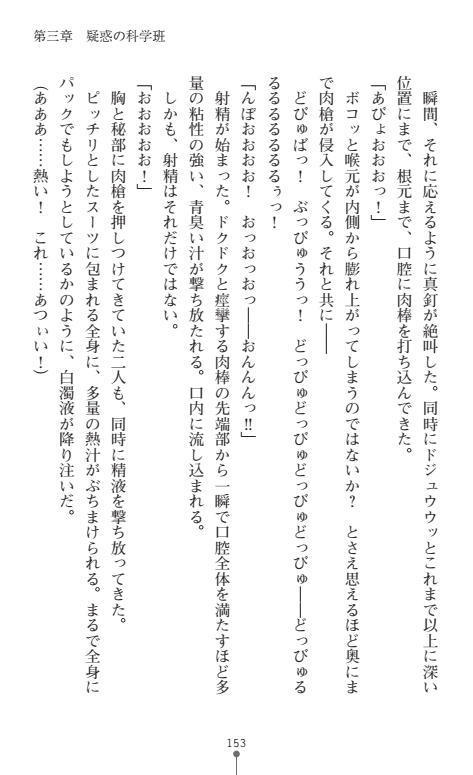 第三章　疑惑の科学班
　瞬間、それに応えるように真釘が絶叫した。同時にドジュウウッとこれまで以上に深い
位置にまで、根元まで、口腔に肉棒を打ち込んできた。
「あぴょおおおっ！」
　ボコッと喉元が内側から膨れ上がってしまうのではないか？　とさえ思えるほど奥にま
で肉槍が侵入してくる。それと共に――
　どぴゅばっ！　ぶっぴゅううっ！　どっぴゅどっぴゅどっぴゅどっぴゅ――どっびゅる
るるるるるるるぅっ！
「んぼおおおお！　おっおっおっ――おんんんっ‼」
　射精が始まった。ドクドクと痙攣する肉棒の先端部から一瞬で口腔全体を満たすほど多
量の粘性の強い、青臭い汁が撃ち放たれる。口内に流し込まれる。
　しかも、射精はそれだけではない。
「おおおおお！」
　胸と秘部に肉槍を押しつけてきていた二人も、同時に精液を撃ち放ってきた。
　ピッチリとしたスーツに包まれる全身に、多量の熱汁がぶちまけられる。まるで全身に
パックでもしようとしているかのように、白濁液が降り注いだ。
（あああ……熱い！　これ……あつぃい！）
153